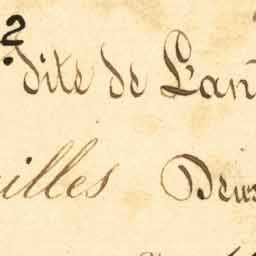 2 dite de L'an
illes Deux